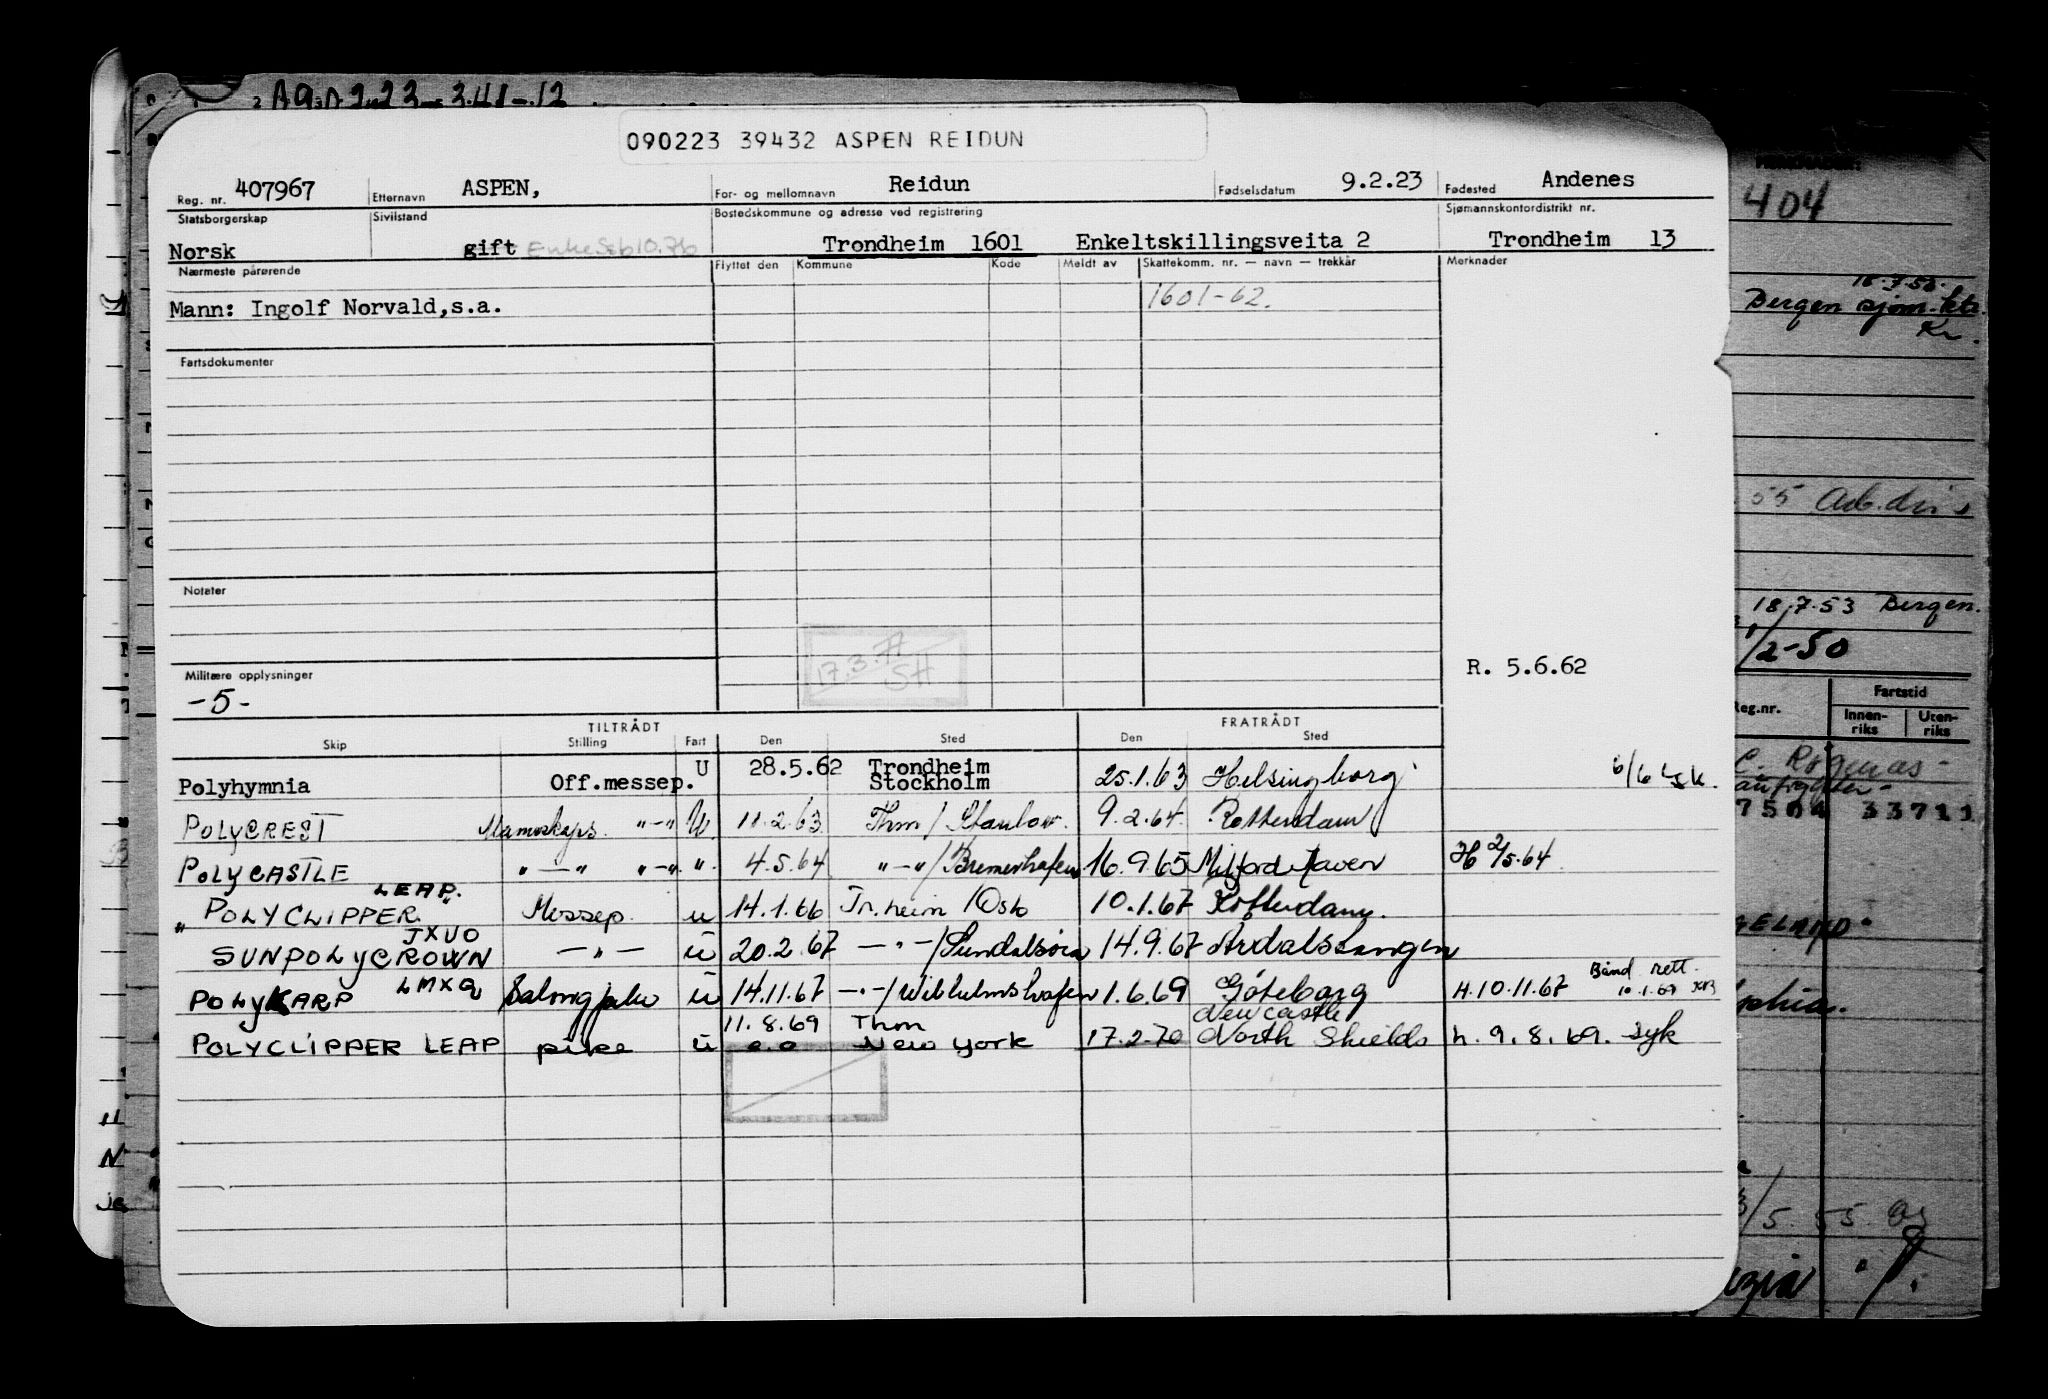 090223 39432 ASPEN REIDUN
Reg. nr. 407967 Etternavn ASPEN, For- og mellomnavn Reidun Fødselsdatum 9.2.23 Fødested Andenes
Statsborgerskap Sivilstand Bostedskommune og adresse ved registrering Sjømannskontordistrikt nr.
Norsk gift Enke Trondheim 1601 Enkeltskillingsveita 2 Trondheim 13
Nærmeste pårørende Flyttet den Kommune Kode Meldt av Skattekomm. nr. — navn — trekkår Merknader
Mann: Ingolf Norvald,s.a. 1601-62.
Fartsdokumenter
Notater
17.3.71
SH
Militære opplysninger R. 5.6.62
-5-
TILTRÅDT FRATRÅDT
Skip Stilling Fart Den Sted Den Sted
Polyhymnia Off.messep. U 28.5.62 Trondheim Stockholm 25.1.63 Helsingborg
POLYCREST Mannskaps. "-" U. 11.2.63 Thm/Stanlow. 9.2.64. Rotterdam
POLYCASTLE "—" "-" ". 4.5.64 "-"/Bremerhafen 16.9.65 Milford Haven H 2/5.64.
LEAP.
" POLYCLIPPER Messep. u 14.1.66 Tr.heim/Oslo 10.1.67 Rotterdam.
JXUO
SUNPOLYCROWN —"— u 20.2.67 —"—/Sundalsøra 14.9.67 Årdalstangen
LMXQ
POLYKARP Salongpike u 14.11.67 —"—/Wilhelmshafen 1.6.69 Göteborg H.10.11.67 Bånd rett. 10.1.69
11.8.69 Thm Newcastle
POLYCLIPPER LEAP pike u New York 17.2.70 North Shields h. 9.8.69. syk
404
18.7.53.
Bergen sjøm.ktr.
Kr.
55 Arb.dir.
18.7.53 Bergen.
1/2-50
Reg.nr. Fartstid
Innenriks Utenriks
7504 33711